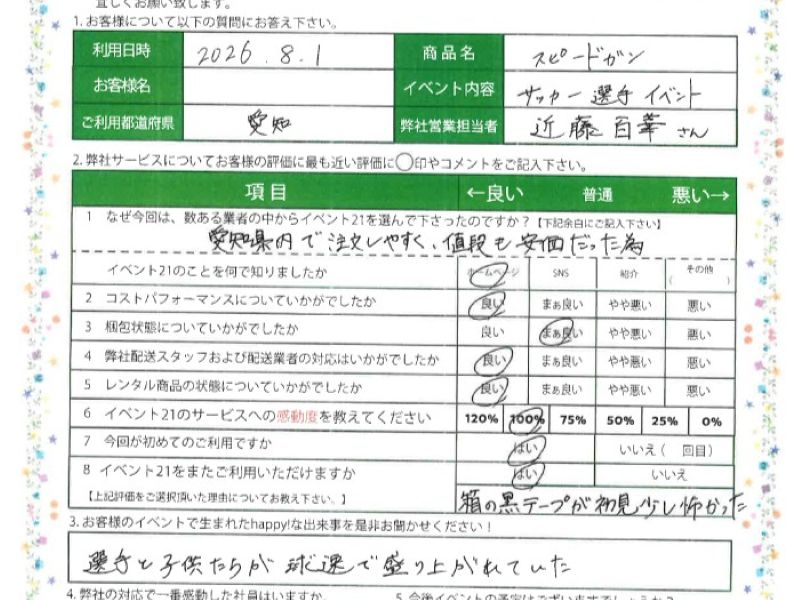 宜しくお願い致します。
1. お客様について以下の質問にお答え下さい。
利用日時 2026.8.1 商品名 スピードガン
お客様名 イベント内容 サッカー選手イベント
ご利用都道府県 愛知 弊社営業担当者 近藤百華さん
2. 弊社サービスについてお客様の評価に最も近い評価に◯印やコメントをご記入下さい。
項目 ←良い 普通 悪い→
1 なぜ今回は、数ある業者の中からイベント21を選んで下さったのですか？【下記余白にご記入下さい】
愛知県内で注文しやすく、値段も安価だった為
イベント21のことを何で知りましたか ホームページ SNS 紹介 その他( )
2 コストパフォーマンスについていかがでしたか 良い まぁ良い やや悪い 悪い
3 梱包状態についていかがでしたか 良い まぁ良い やや悪い 悪い
4 弊社配送スタッフおよび配送業者の対応はいかがでしたか 良い まぁ良い やや悪い 悪い
5 レンタル商品の状態についていかがでしたか 良い まぁ良い やや悪い 悪い
6 イベント21のサービスへの感動度を教えてください 120% 100% 75% 50% 25% 0%
7 今回が初めてのご利用ですか はい いいえ( 回目)
8 イベント21をまたご利用いただけますか はい いいえ
【上記評価をご選択頂いた理由についてお教え下さい。】 箱の黒テープが初見少し怖かった
3. お客様のイベントで生まれたhappy!な出来事を是非お聞かせください！
選手と子供たちが球速で盛り上がれていた
4. 弊社の対応で一番感動した社員はいますか。 5. 今後イベントの予定はございますでしょうか？